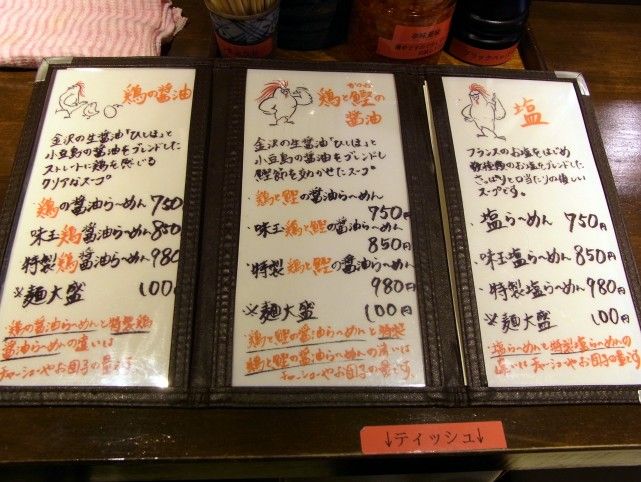 鶏の醤油
金沢の生醤油「ひしほ」と
小豆島の醤油をブレンドした
ストレートに鶏を感じる
クリアなスープ
・鶏の醤油らーめん 750
味玉鶏醤油らーめん 850
・特製鶏醤油らーめん 980
※麺大盛 100円
・鶏の醤油らーめんと特製鶏
醤油らーめんの違いは
チャーシューやお団子の量です
かつお
鶏と鰹の
醤油
金沢の生醤油「ひしほ」と
小豆島の醤油をブレンドし
鰹節を効かせたスープ。
・鶏と鰹の醤油らーめん
750円
・味玉鶏と鰹の醤油らーめん
850円
・特製鶏と鰹の醤油らーめん
980円
※麺大盛 100円
・鶏と鰹の醤油らーめんと特製
鶏と鰹の醤油らーめんの違いは
チャーシューやお団子の量です。
塩
フランスのお塩をはじめ
数種類のお塩をブレンドした
さっぱりと口当たりの優しい
スープです。
・塩らーめん 750円
・味玉塩らーめん 850円
・特製塩らーめん 980円
※麺大盛 100円
・塩らーめんと特製塩らーめんの
違いはチャーシューやお団子の量です
↓ティッシュ↓